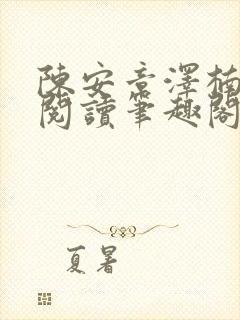 陳安章澤楠
閱讀筆趣閣
夏暑